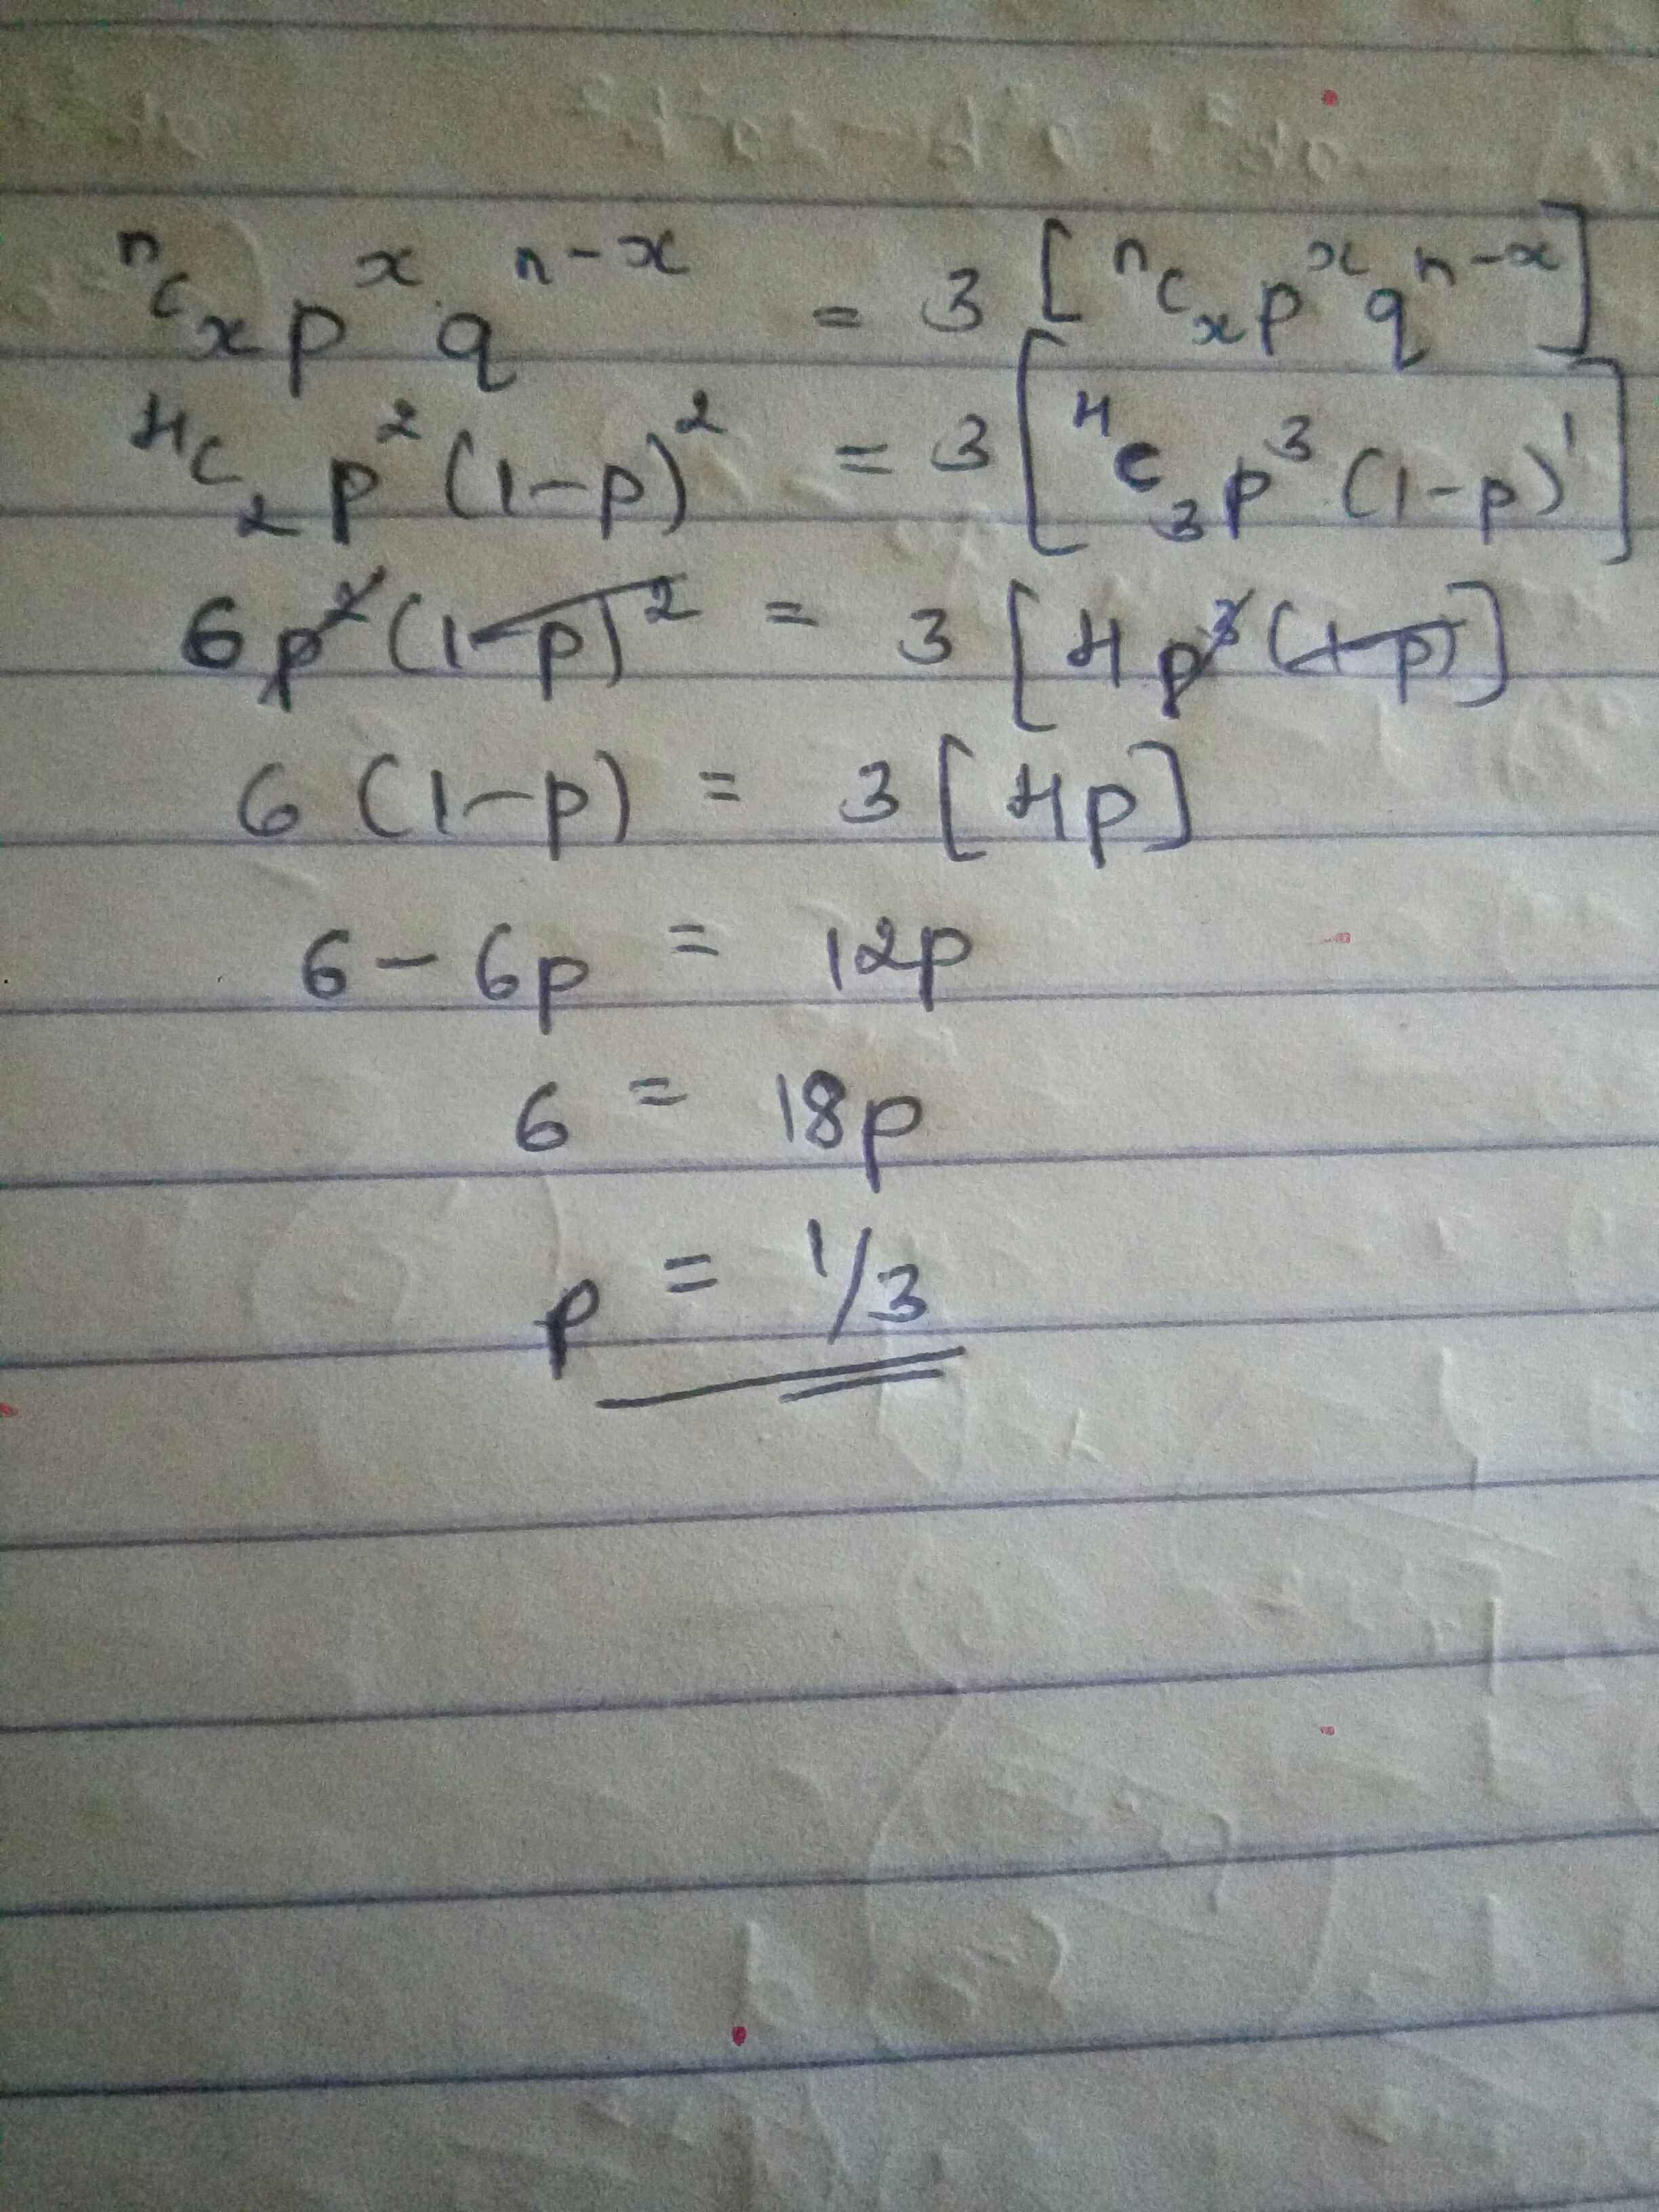 ⁿCₓ pˣ qⁿ⁻ˣ = 3 [ⁿCₓ pˣ qⁿ⁻ˣ]
⁴C₂ p² (1-p)² = 3 [⁴C₃ p³ (1-p)¹]
6p² (1-p)² = 3 [4p³ (1-p)]
6 (1-p) = 3 [4p]
6 - 6p = 12p
6 = 18p
p = 1/3